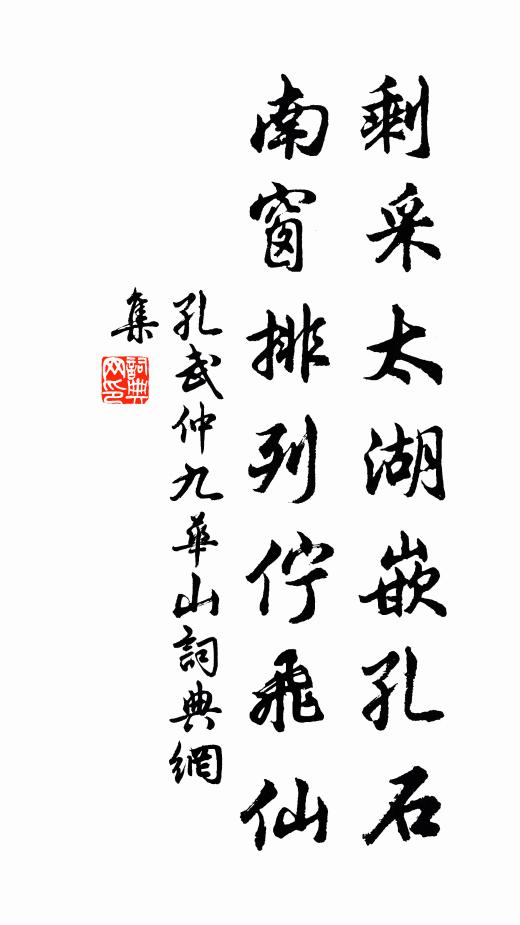 剩采太湖嵌孔石
南窗排列佇飛仙
孔武仲九華山詞典網
集
詞典
网印